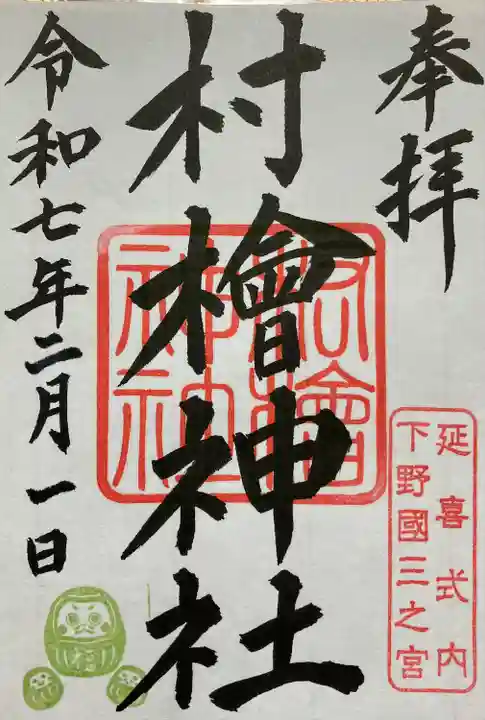 奉拝
延喜式内
下野國三之宮
村檜神社
村檜神社
令和七年二月一日
村